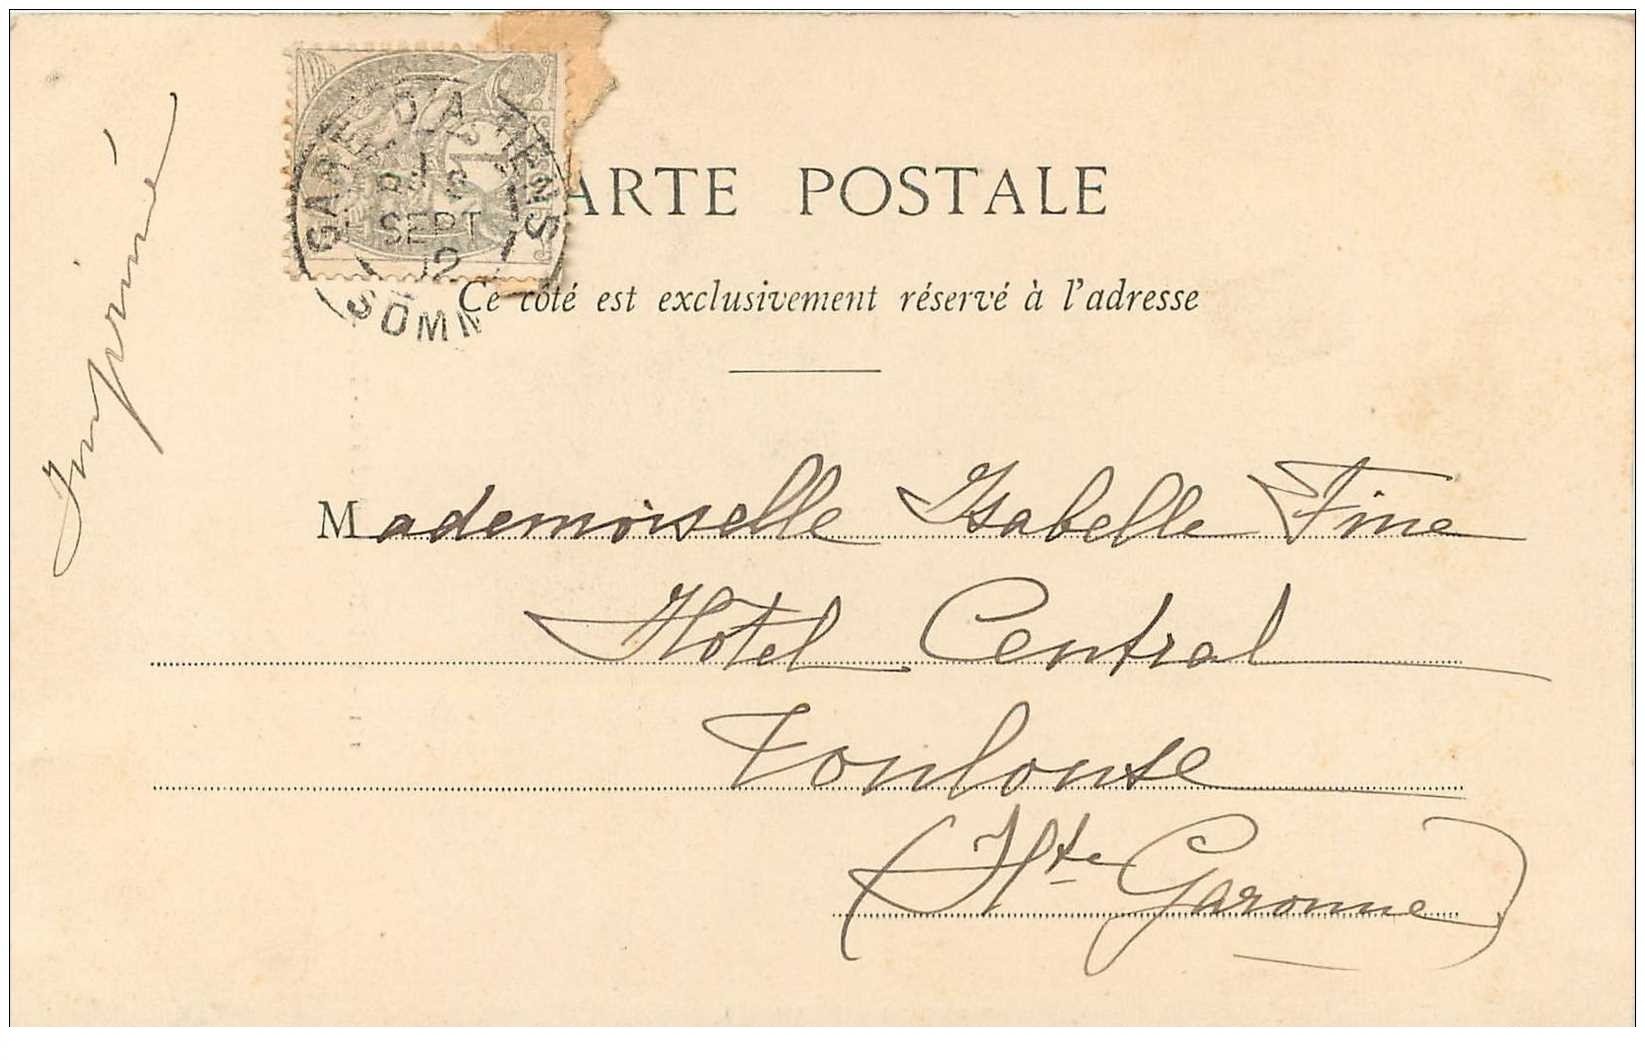 Imprimé
GARE D'AMIENS
SEPT
SOMM
1
ARTE POSTALE
Ce côté est exclusivement réservé à l'adresse
Mademoiselle Isabelle Fine
Hotel Central
Toulouse
(Hte Garonne)